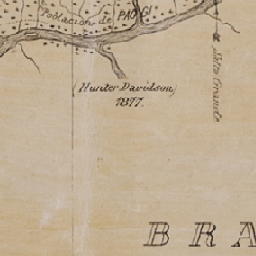 Poblacion de PAGGI
(Hunter Davidson)
1877.
Salto Grande
B R A